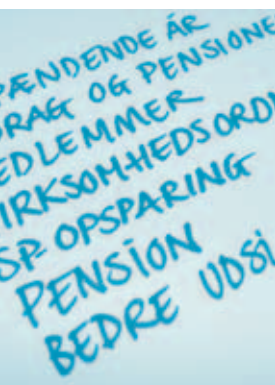 PÆNDENDE ÅR
DRAG OG PENSIONE
EDLEMMER
IRKSOMHEDSORDN
SP-OPSPARING
PENSION
BEDRE UDSI